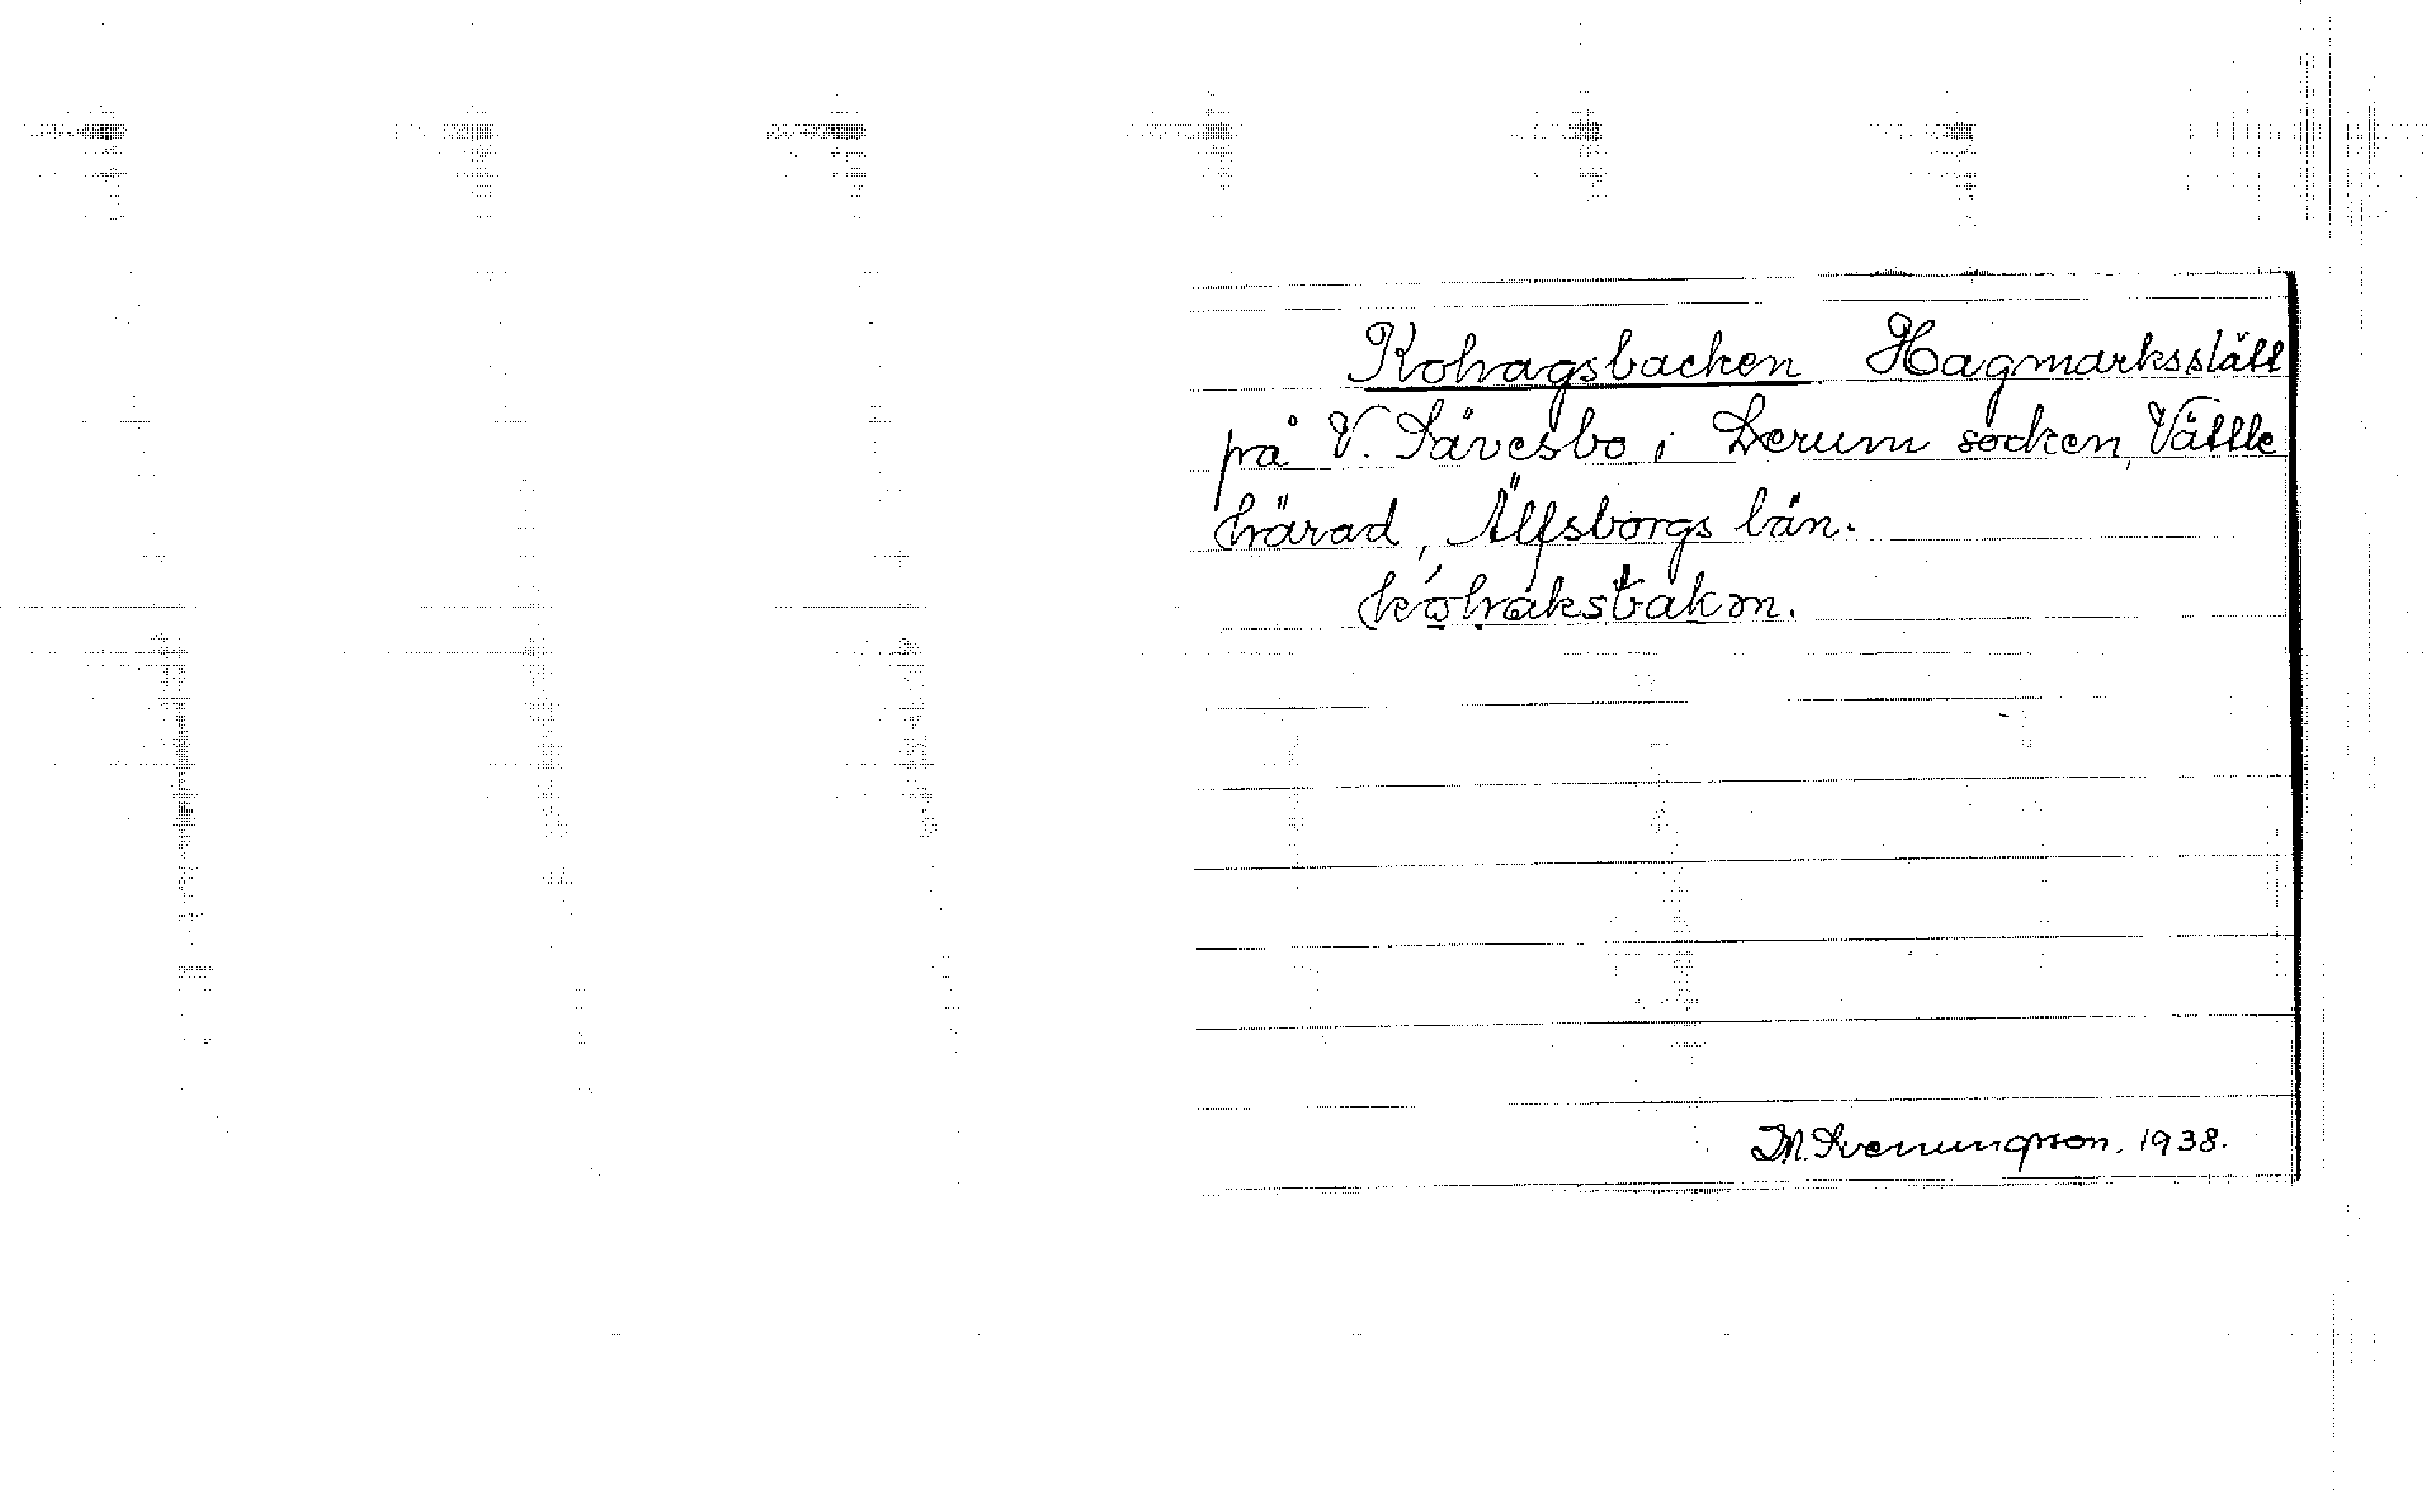 Kohagsbacken Hagmarksslätt
på V. Sävesbo i Lerum socken, Vättle
härad, Älfsborgs län.
kóhàksbakən.
M. Svenungsson. 1938.